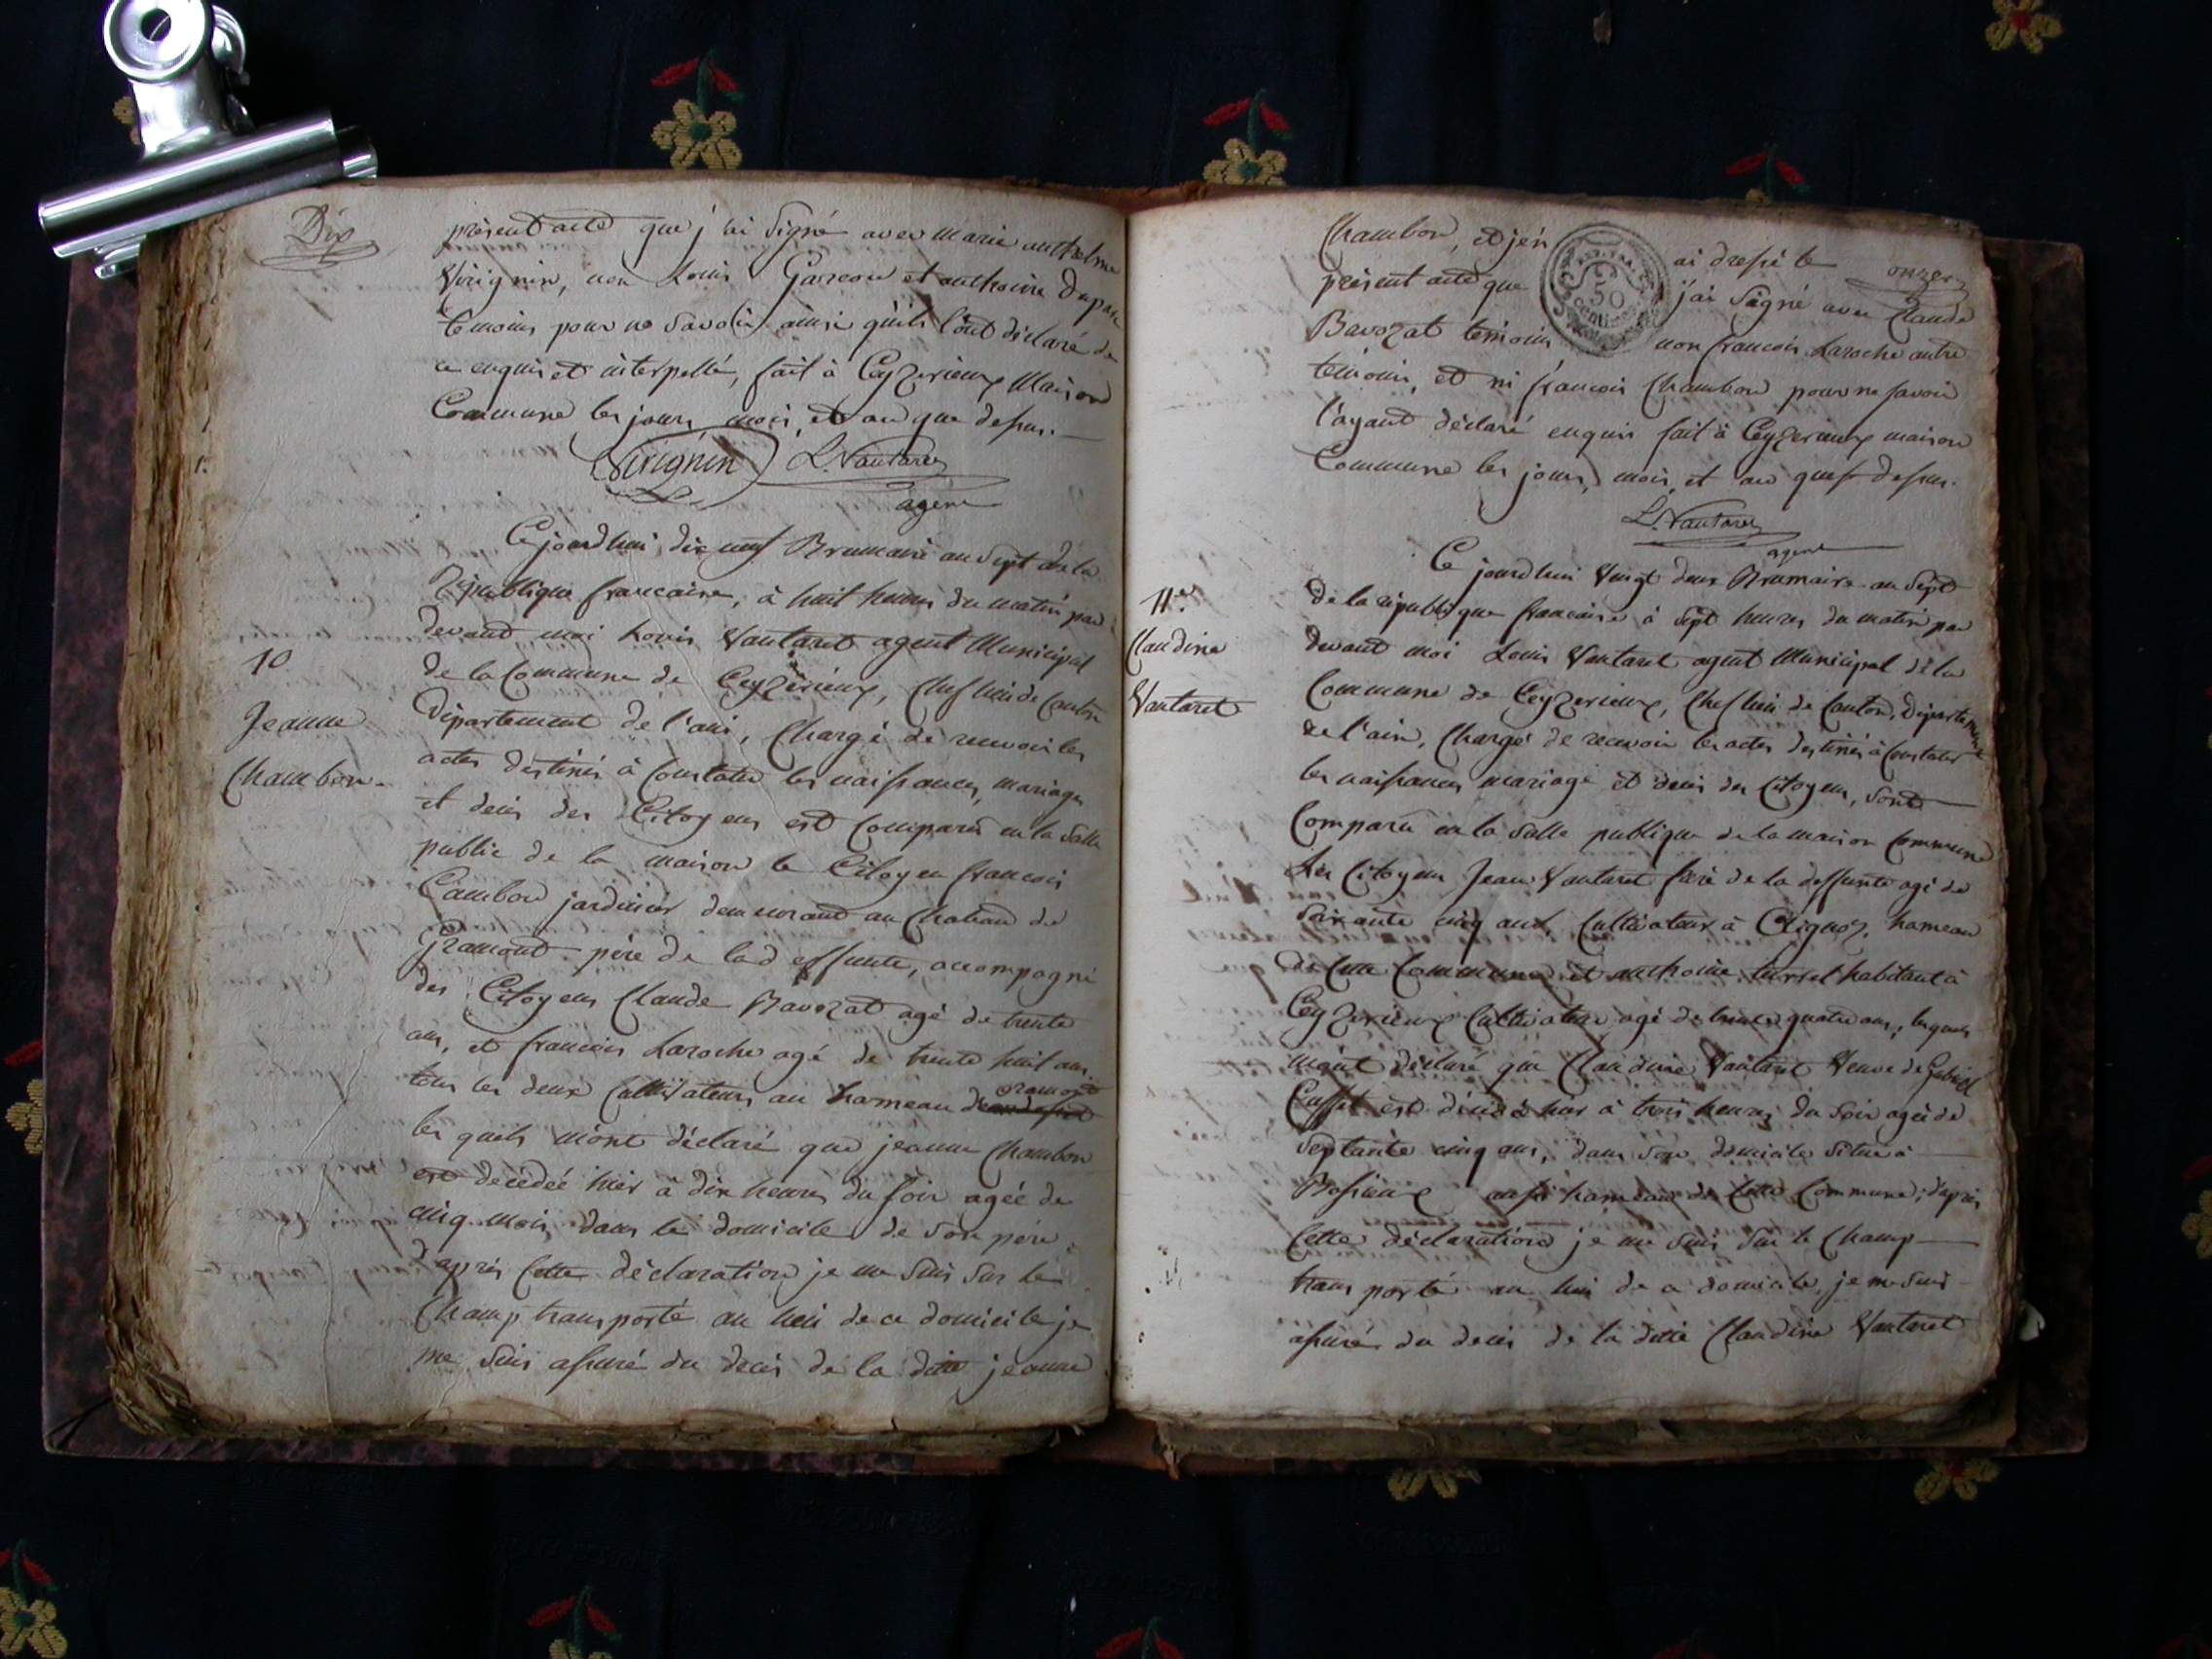 Dix
présent acte que j'ai signé avec marie anthelme
Virignin, non Louis Garcon et anthoine Dupar
temoins pour ne savoir ainsi qu'ils l'ont déclaré de
ce enquis et interpellé, fait à Ceyzerieux Maison
Commune les jours, mois, et an que dessus.
Virignin L. Vautaret
agent
10
Jeanne
Chambon.
Cejourdhui dix neuf Brumaire an Sept de la
République francaise, à huit heures du matin par
devant moi Louis Vautaret agent Municipal
de la Commune de Ceyzérieux, Chef lieu de Canton
Département de l'ain, Chargé de recevoir les
actes destinés à Constater les naissances, mariages
et deces des Citoyens est Comparu en la Salle
public de la maison le Citoyen francois
Cambon jardinier demeurant au Chateau de
Gramont père de la deffunte, accompagné
des Citoyens Claude Bavozat agé de trente
ans, et francois Laroche agé de trente huit ans
tous les deux Cultivateurs au hameau de gramont
les quels m'ont déclaré que jeanne Chambon
est decédée hier à dix heures du soir agée de
cinq mois, dans le domicile de son père,
d'après Cette déclaration je me suis sur le
Champ transporté au lieu de ce domicile je
me suis assuré du deces de la ditte jeanne
onze
Chambon, et j'en ai dressé le
présent acte que j'ai signé avec Claude
Bavozat temoin non francois Laroche autre
témoin, et ni francois Chambon pour ne savoir
l'ayant déclaré enquis fait à Ceyzerieux maison
Commune les jours, mois, et an que dessus.
50
Centimes
L. Vautaret
agent
11e
Claudine
Vautaret
Ce jourdhui Vingt deux Brumaire an Sept
de la république francaise à Sept heures du matin par
devant moi Louis Vautaret agent Municipal de la
Commune de Ceyzerieux, Chef lieu de Canton, Département
de l'ain, Chargé de recevoir les actes destinés à Constater
les naissances mariage et deces des Citoyens, sont
Comparu en la Salle publique de la maison Commune
Les Citoyens Jean Vautaret frère de la deffunte agé de
soixante cinq ans, Cultivateur à Aignoz, hameau
de Cette Commune et anthoine habitant à
Ceyzerieux Cultivateur agé de trente quatre ans, lesquels
m'ont déclaré que Claudine Vautaret Veuve de Gabriel
Cusset est décédé hier à trois heures du soir agée de
septante cinq ans, dans son domicile situé à
Bossieux aussi hameau de Cette Commune; daprès
Cette déclaration je me suis sur le Champ
transporté au lieu de ce domicile, je me suis
assuré du deces de la ditte Claudine Vautaret